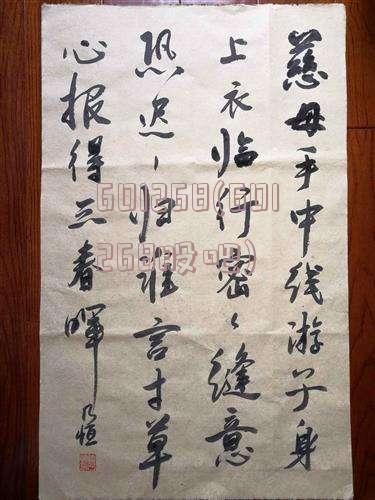 慈母手中线游子身
上衣临行密〻缝意
恐迟〻归谁言寸草
心报得三春晖
乃恒
601268(601
268股吧)